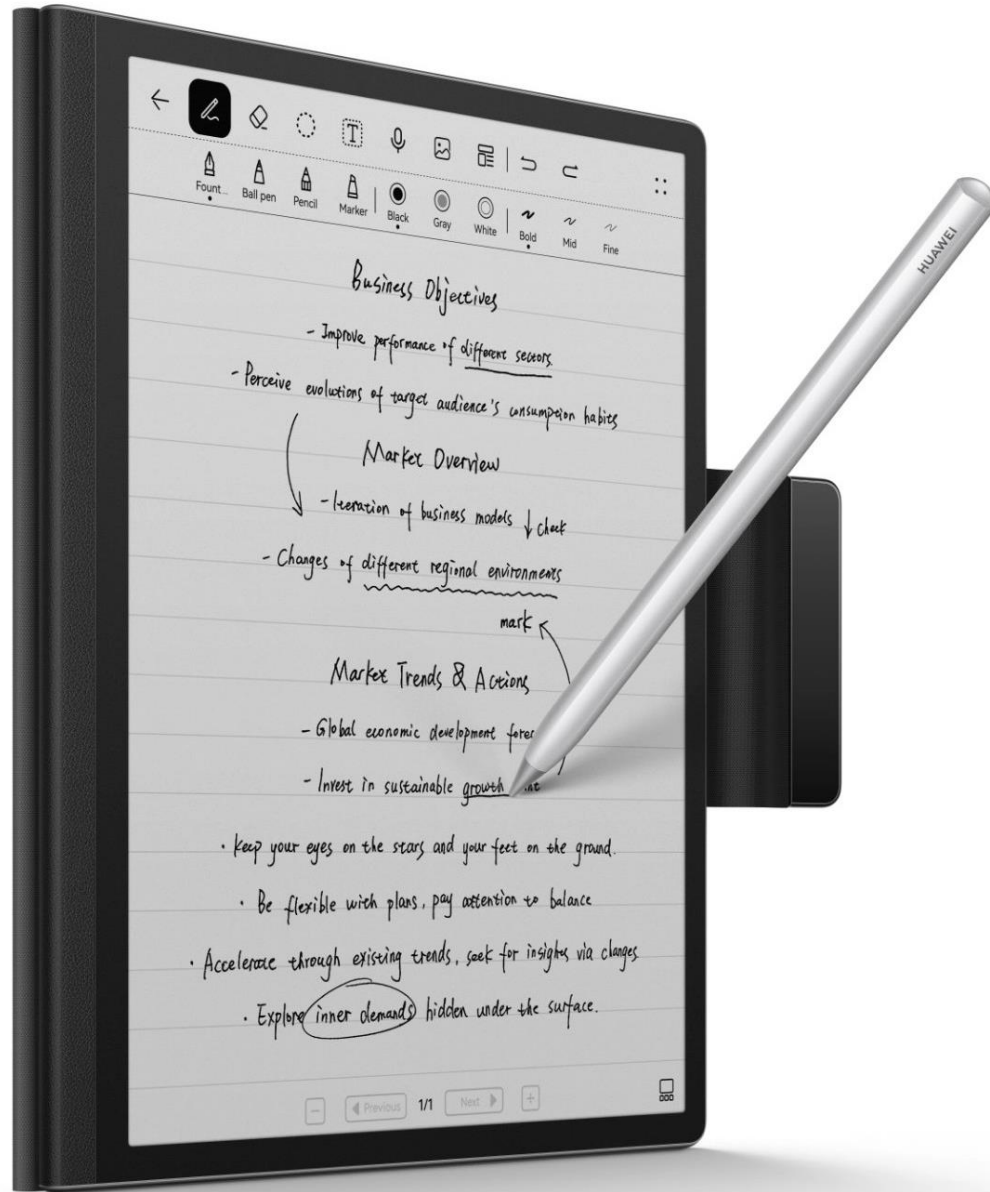 Fount...
Ball pen
Pencil
Marker
Black
Gray
White
Bold
Mid
Fine
HUAWEI
Business Objectives
- Improve performance of different sectors
- Perceive evolutions of target audience's consumption habits
Market Overview
- Iteration of business models ↓ check
- Changes of different regional environments
mark
Market Trends & Actions
- Global economic development
- Invest in sustainable growth
· keep your eyes on the stars and your feet on the ground.
· Be flexible with plans, pay attention to balance
· Accelerate through existing trends, seek for insights via changes
· Explore inner demands hidden under the surface.
Previous 1/1 Next